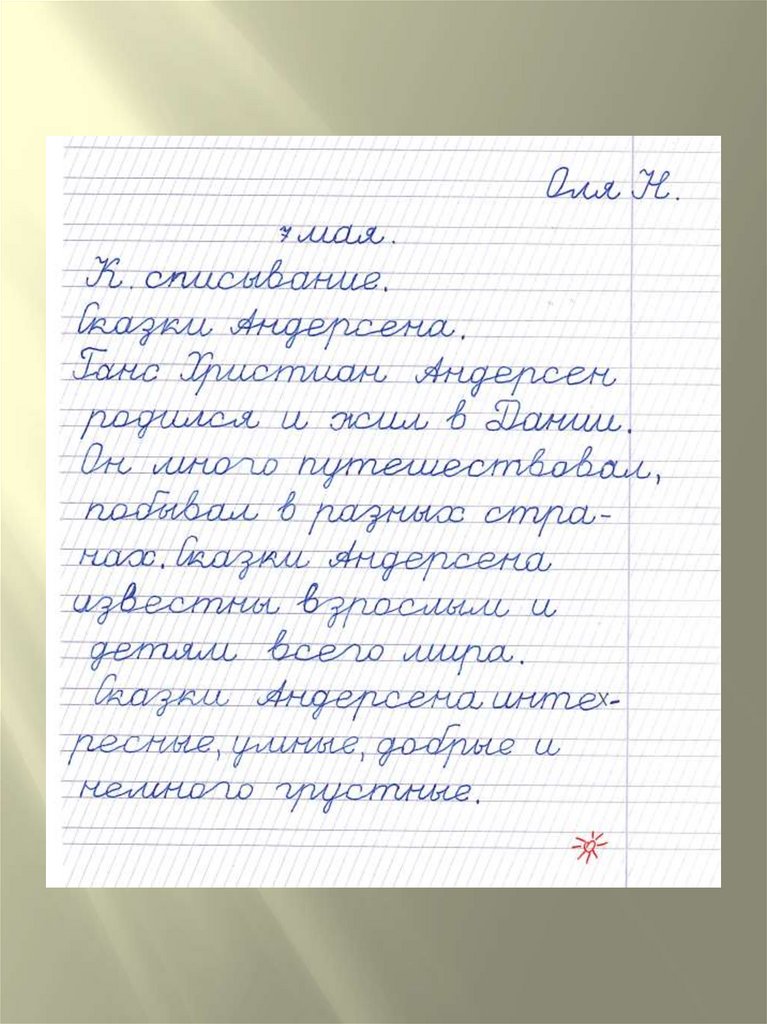 Оля Н.
7 мая.
К. списывание.
Сказки Андерсена.
Ганс Христиан Андерсен
родился и жил в Дании.
Он много путешествовал,
побывал в разных стра-
нах. Сказки Андерсена
известны взрослым и
детям всего мира.
Сказки Андерсена инте-
ресные, умные, добрые и
немного грустные.